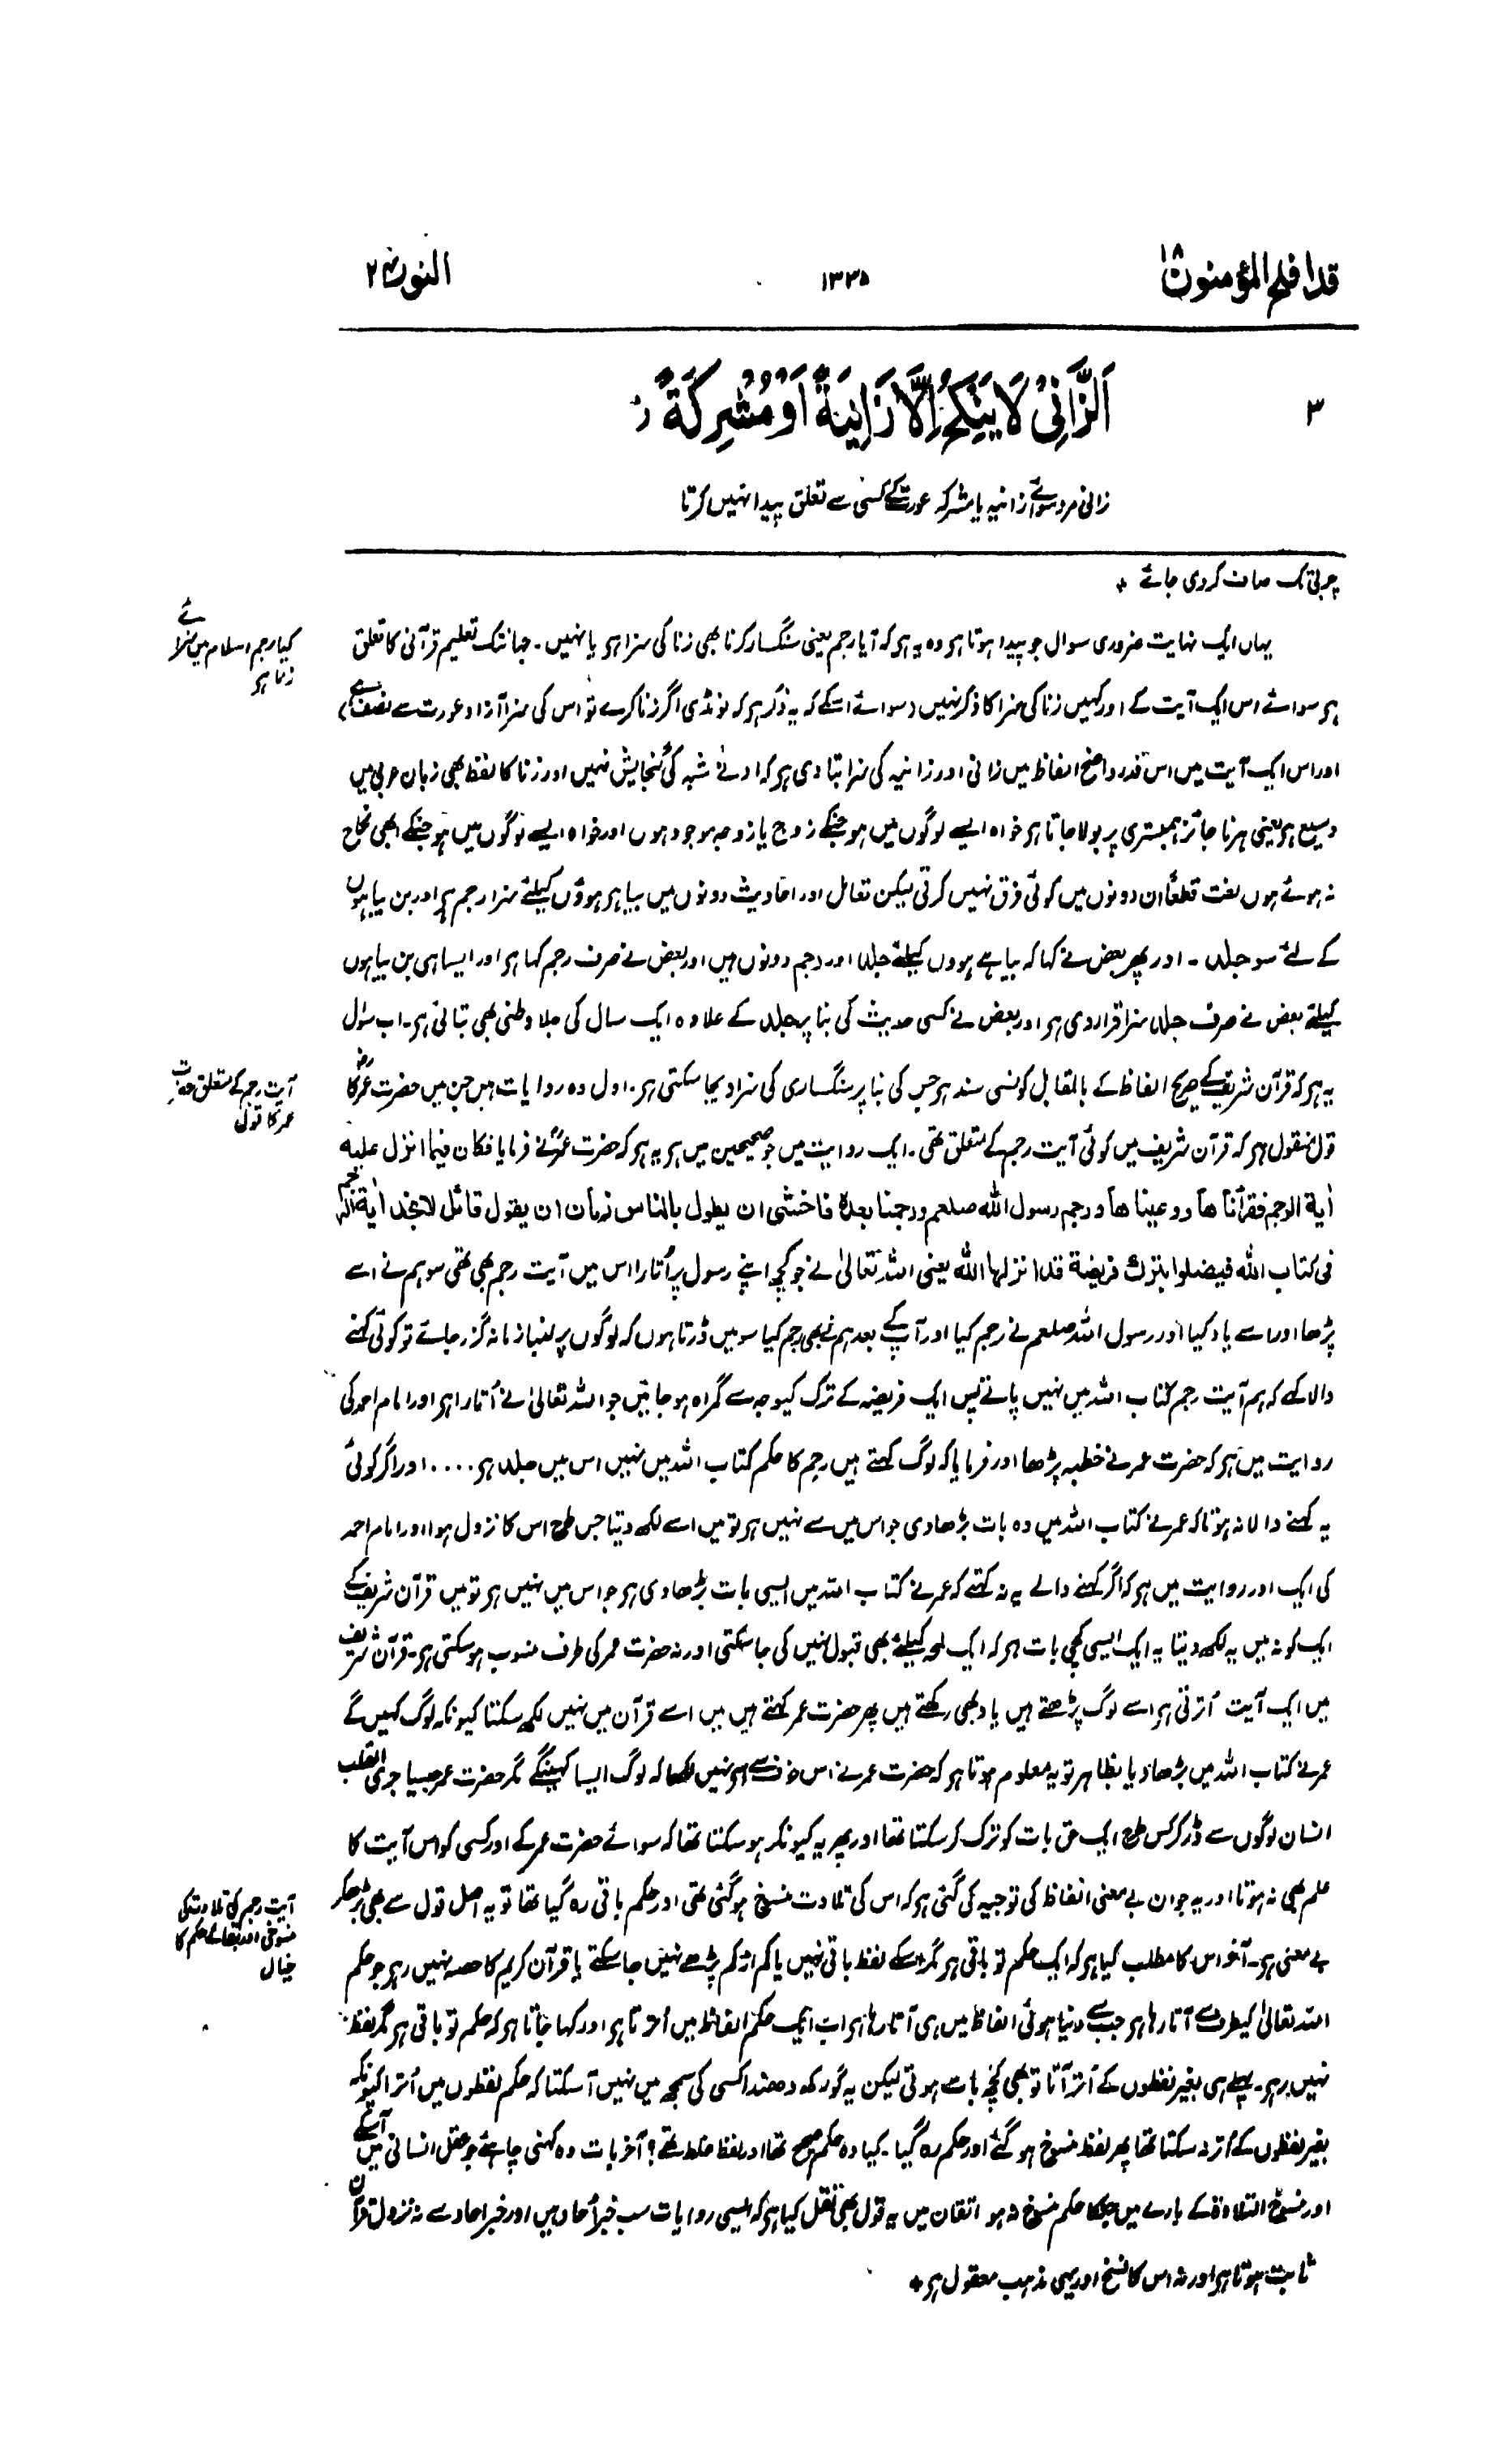 قد افلح المؤمنون ۱۸
۱۳۳۵
النور ۲۴
۳
اَلزَّانِیْ لَا یَنْکِحُ اِلَّا زَانِیَةً اَوْ مُشْرِکَةً ز
زانی مرد سوائے زانیہ یا مشرکہ عورت کے کسی سے تعلق پیدا نہیں کرتا
چربی تک صاف کر دی جائے +
یہاں ایک نہایت ضروری سوال جو پیدا ہوتا ہو وہ یہ ہو کہ آیا رجم یعنی سنگسار کرنا بھی زنا کی سزا ہو یا نہیں۔ جہانتک تعلیم قرآنی کا تعلق
کیا رجم اسلام میں سزائے
زنا ہو
ہو سوائے اس ایک آیت کے اور کہیں زنا کی سزا کا ذکر نہیں (سوائے اسکے کہ یہ ذکر ہو کہ لونڈی اگر زنا کرے تو اس کی سزا آزاد عورت سے نصف ہے)
اور اس ایک آیت میں اس قدر واضح الفاظ میں زانی اور زانیہ کی سزا بتا دی ہو کہ ادنےٰ شبہ کی گنجایش نہیں اور زنا کا لفظ بھی زبان عربی میں
وسیع ہو یعنی ہر نا جائز ہمبستری پر بولا جاتا ہو خواہ ایسے لوگوں میں ہو جنکے زوج یا زوجہ موجود ہوں اور خواہ ایسے لوگوں میں ہو جنکے ابھی نکاح
نہ ہوئے ہوں لغت قطعاً ان دونوں میں کوئی فرق نہیں کرتی لیکن تعامل اور احادیث دونوں میں بیاہے ہوؤں کیلئے سزا رجم ہو اور بن بیاہوں
کے لئے سو جلد۔ اور پھر بعض نے کہا کہ بیاہے ہووں کیلئے جلد اور رجم دونوں ہیں اور بعض نے صرف رجم کہا ہو اور ایسا ہی بن بیاہوں
کیلئے بعض نے صرف جلد سزا قرار دی ہو اور بعض نے کسی حدیث کی بنا پر جلد کے علاوہ ایک سال کی جلا وطنی بھی بتائی ہو۔ اب سوال
یہ ہو کہ قرآن شریف کے صریح الفاظ کے بالمقابل کونسی سند ہو جس کی بنا پر سنگساری کی سزا دیجا سکتی ہو۔ اول وہ روایات ہیں جن میں حضرت عمرؓ کا
آیت رجم کے متعلق حضرت
عمر کا قول
قول منقول ہو کہ قرآن شریف میں کوئی آیت رجم کے متعلق تھی۔ ایک روایت میں جو صحیحین میں ہو یہ ہو کہ حضرت عمرؓ نے فرمایا فکان فیما انزل علیه
اٰیة الرجم فقرأناها ووعیناها ورجم رسول الله صلعم ورجمنا بعدہ فاخشی ان یطول بالناس زمان ان یقول قائل لا نجد اٰیة الرجم
فی کتاب الله فیضلوا بترك فریضة قد انزلها الله یعنی اللہ تعالیٰ نے جو کچھ اپنے رسول پر اُتارا اس میں آیت رجم بھی تھی سو ہم نے اسے
پڑھا اور اسے یاد کیا اور رسول اللہ صلعم نے رجم کیا اور آپ کے بعد ہم نے بھی رجم کیا سو میں ڈرتا ہوں کہ لوگوں پر لمبا زمانہ گزر جائے تو کوئی کہنے
والا کہے کہ ہم آیت رجم کتاب اللہ میں نہیں پاتے پس ایک فریضہ کے ترک کیوجہ سے گمراہ ہو جائیں جو اللہ تعالیٰ نے اُتارا ہو اور امام احمد کی
روایت میں ہو کہ حضرت عمر نے خطبہ پڑھا اور فرمایا کہ لوگ کہتے ہیں رجم کا حکم کتاب اللہ میں نہیں اس میں جلد ہو .... اور اگر کوئی
یہ کہنے والا نہ ہوتا کہ عمر نے کتاب اللہ میں وہ بات بڑھا دی جو اس میں سے نہیں ہو تو میں اسے لکھ دیتا جس طرح اس کا نزول ہوا اور امام احمد
کی ایک اور روایت میں ہو کہ اگر کہنے والے یہ نہ کہتے کہ عمر نے کتاب اللہ میں ایسی بات بڑھا دی ہو جو اس میں نہیں ہو تو میں قرآن شریف کے
ایک کونہ میں یہ لکھ دیتا یہ ایک ایسی کچی بات ہو کہ ایک لمحہ کیلئے بھی قبول نہیں کی جا سکتی اور نہ حضرت عمر کی طرف منسوب ہو سکتی ہو۔ قرآن شریف
میں ایک آیت اُترتی ہو اسے لوگ پڑھتے ہیں یاد بھی رکھتے ہیں پھر حضرت عمر کہتے ہیں میں اسے قرآن میں نہیں لکھ سکتا کیونکہ لوگ کہیں گے
عمر نے کتاب اللہ میں بڑھا دیا بظاہر تو یہ معلوم ہوتا ہو کہ حضرت عمر نے اس خوف سے نہیں لکھا کہ لوگ ایسا کہینگے مگر حضرت عمر جیسا جری القلب
انسان لوگوں سے ڈر کر کس طرح ایک حق بات کو ترک کر سکتا تھا اور پھر یہ کیونکر ہو سکتا تھا کہ سوائے حضرت عمر کے اور کسی کو اس آیت کا
علم بھی نہ ہوتا اور یہ جو ان بے معنی الفاظ کی توجیہ کی گئی ہو کہ اس کی تلاوت منسوخ ہو گئی تھی اور حکم باقی رہ گیا تھا تو یہ اصل قول سے بھی بڑھکر
آیت رجم کی تلاوت کی
منسوخی اور بقائے حکم کا
خیال
بے معنی ہو۔ آخر اس کا مطلب کیا ہو کہ ایک حکم تو باقی ہو مگر اسکے لفظ باقی نہیں یا کم از کم پڑھے نہیں جا سکتے یا قرآن کریم کا حصہ نہیں رہو جو حکم
اللہ تعالیٰ کیطرف سے آتا رہا ہو جب سے دنیا ہوئی الفاظ میں ہی آتا رہا ہو اب ایک حکم الفاظ میں اُترتا ہو اور کہا جاتا ہو کہ حکم تو باقی ہو مگر لفظ
نہیں رہو۔ پہلے ہی بغیر لفظوں کے اُتر آتا تو بھی کچھ بات ہوتی لیکن یہ گورکھ دھندا کسی کی سمجھ میں نہیں آ سکتا کہ حکم لفظوں میں اُترا کیونکہ
بغیر لفظوں کے اُتر نہ سکتا تھا پھر لفظ منسوخ ہو گئے اور حکم رہ گیا۔ کیا وہ حکم صحیح تھا اور لفظ غلط تھے؟ آخر بات وہ کہنی چاہئے جو عقل انسانی میں آسکے
اور منسوخ التلاوۃ کے بارے میں جسکا حکم منسوخ نہ ہو اتقان میں یہ قول بھی نقل کیا ہو کہ ایسی روایات سب خبر آحاد ہیں اور خبر احاد سے نہ نزول قرآن
ثابت ہوتا ہو اور نہ اس کا نسخ اور یہی مذہب معقول ہو +